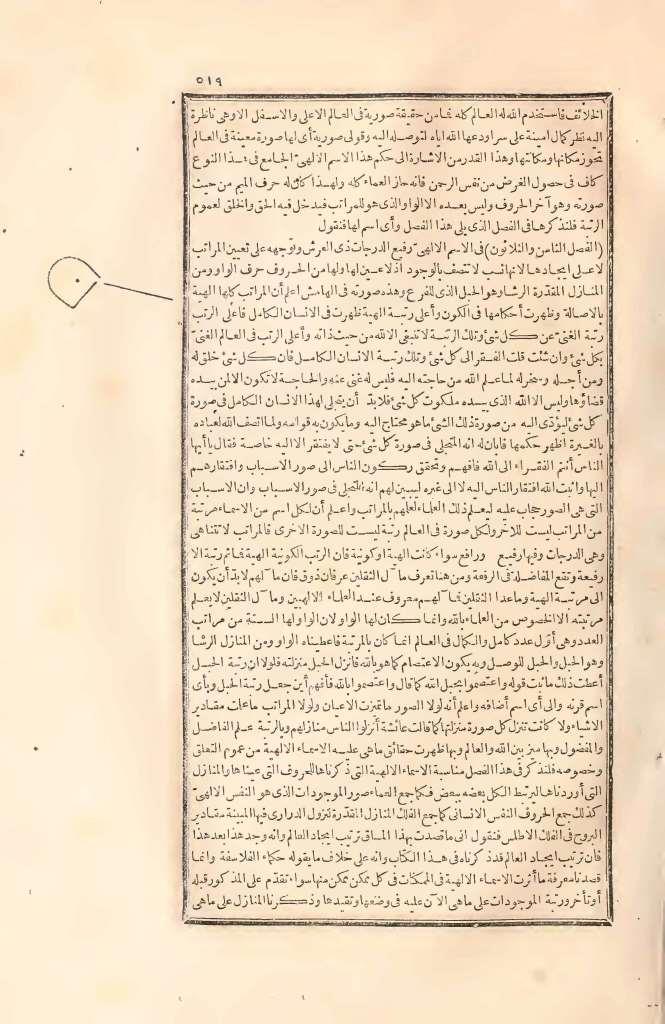 ٥١٩
الخلائف فاستخدم الله له العالم كله فما من حقيقة صورية في العالم الاعلى والاسفل الاوهى ناظرة
اليه نظر كمال امينة على سر اودعها الله اياه لتوصله اليه وقولى صورية أى لها صورة معينة فى العالم
تحوز مكانها ومكانتها وهذا القدر من الاشارة الى حكم هذا الاسم الالهى الجامع فى هذا النوع
كاف فى حصول الغرض من نفس الرحمن فانه حاز العماء كله ولهذا كان له حرف الميم من حيث
صورته وهو آخر الحروف وليس بعده الا الواو الذى هو للمراتب فيدخل فيه الحق والخلق لعموم
الرتبة فلنذكرها فى الفصل الذى يلى هذا الفصل وأى اسم لها فنقول
(الفصل الثامن والثلاثون) فى الاسم الالهى رفيع الدرجات ذى العرش وتوجهه على تعيين المراتب
لا على ايجادها لانها نسب لا تتصف بالوجود اذ لا عين لها ولها من الحروف حرف الواو ومن
المنازل المقدرة الرشا وهو الحبل الذى للفرع وهذه صورته فى الهامش اعلم أن المراتب كلها الهية
بالاصالة وظهرت أحكامها فى الكون وأعلى رتبة الهية ظهرت فى الانسان الكامل فأعلى الرتب
رتبة الغنى عن كل شئ وتلك الرتبة لا تنبغى الا لله من حيث ذاته وأعلى الرتب فى العالم الغنى
بكل شئ وان شئت قلت الفقر الى كل شئ وتلك رتبة الانسان الكامل فان كل شئ خلق له
ومن أجله وسخر له لما علم الله من حاجته اليه فليس له غنى عنه والحاجة لا تكون الا لمن بيده
قضاؤها وليس الا الله الذى بيده ملكوت كل شئ فلا بد أن يتجلى لهذا الانسان الكامل فى صورة
كل شئ ليؤدى اليه من صورة ذلك الشئ ما هو محتاج اليه وما يكون به قوامه ولما اتصف الله لعباده
بالغيرة اظهر حكمها فابان له انه المتجلى فى صورة كل شئ حتى لا يفتقر الا اليه خاصة فقال يا أيها
الناس أنتم الفقراء الى الله فافهم وتحقق ركون الناس الى صور الاسباب وافتقارهم
اليها واثبت الله افتقار الناس اليه لا الى غيره ليبين لهم انه المتجلى فى صور الاسباب وان الاسباب
التى هى الصور حجاب عليه ليعلم ذلك العلماء لعلمهم بالمراتب واعلم أن لكل اسم من الاسماء مرتبة
من المراتب ليست للآخر ولكل صورة فى العالم رتبة ليست للصورة الاخرى فالمراتب لا تتناهى
وهى الدرجات وفيها رفيع ورافع سواء كانت الهية اوكونية فان الرتب الكونية الهية فما ثم رتبة الا
رفيعة وتقع المفاضلة فى الرفعة ومن هنا تعرف مآل الثقلين عرفان ذوق فان مآلهم لا بد أن يكون
الى مرتبة الهية وما عدا الثقلين فما لهم معروف عند العلماء الالهيين ومآل الثقلين لا يعلم
مرتبته الا الخصوص من العلماء بالله وانما كان لها الواو لان الواو لها الستة من مراتب
العدد وهى أول عدد كامل والكمال فى العالم انما كان بالمرتبة فاعطيناه الواو ومن المنازل الرشا
وهو الحبل والحبل للوصل وبه يكون الاعتصام كما هو بالله فانزل الحبل منزلته فلولا ان رتبة الحبل
أعطت ذلك ما ثبت قوله واعتصموا بحبل الله كما قال واعتصموا بالله فأفهم أين جعل رتبة الحبل وبأى
اسم قرنه والى أى اسم أضافه واعلم أنه لولا الصور ما تميزت الاعيان ولولا المراتب ما علمت مقادير
الاشياء ولا كانت تنزل كل صورة منزلتها كما قالت عائشة أنزلوا الناس منازلهم وبالرتبة علم الفاضل
والمفضول وبها ميز بين الله والعالم وبها ظهرت حقائق ما هى عليه الاسماء الالهية من عموم التعلق
وخصوصه فلنذكر فى هذا الفصل مناسبة الاسماء الالهية التى ذكرناها للحروف التى عيناها والمنازل
التى أوردناها ليرتبط الكل بعضه ببعض فكما جمع العماء صور الموجودات الذى هو النفس الالهى
كذلك جمع الحروف النفس الانسانى كما جمع الفلك المنازل المقدرة لنزول الدرارى فيها المبينة مقادير
البروج فى الفلك الاطلس فنقول انى ما قصدت بهذا المساق ترتيب ايجاد العالم وانه وجد هذا بعد هذا
فان ترتيب ايجاد العالم قد ذكرناه فى هذا الكتاب وانه على خلاف ما يقوله حكماء الفلاسفة وانما
قصدنا معرفة ما أثرت الاسماء الالهية فى الممكنات فى كل ممكن ممكن منها سواء تقدم على المذكور قبله
أو تأخر ورتبة الموجودات على ما هى الآن عليه فى وضعها وتقيدها وذكرنا المنازل على ما هى